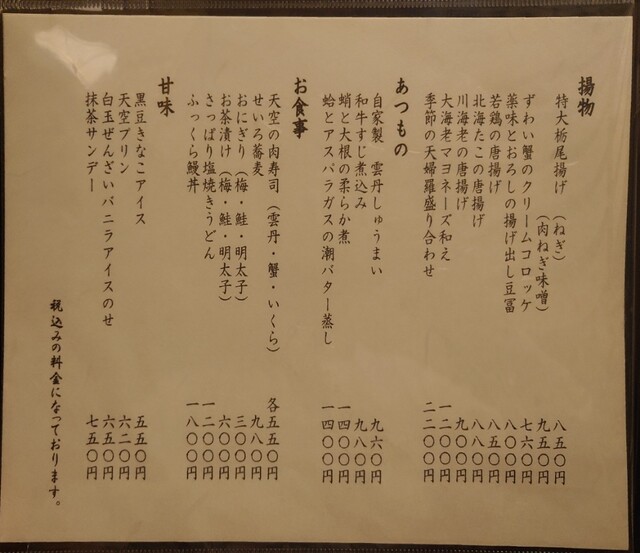 揚物
特大栃尾揚げ（ねぎ） 八五〇円
（肉ねぎ味噌） 九五〇円
ずわい蟹のクリームコロッケ 七六〇円
薬味とおろしの揚げ出し豆冨 八〇〇円
若鶏の唐揚げ 八五〇円
北海たこの唐揚げ 八八〇円
川海老の唐揚げ 九〇〇円
大海老マヨネーズ和え 一二〇〇円
季節の天婦羅盛り合わせ 二二〇〇円
あつもの
自家製 雲丹しゅうまい 九六〇円
和牛すじ煮込み 九八〇円
蛸と大根の柔らか煮 一四〇〇円
蛤とアスパラガスの潮バター蒸し 一四〇〇円
お食事
天空の肉寿司（雲丹・蟹・いくら） 各五五〇円
せいろ蕎麦 九八〇円
おにぎり（梅・鮭・明太子） 三〇〇円
お茶漬け（梅・鮭・明太子） 六〇〇円
さっぱり塩焼きうどん 一二〇〇円
ふっくら鰻丼 一八〇〇円
甘味
黒豆きなこアイス 五五〇円
天空プリン 六二〇円
白玉ぜんざいバニラアイスのせ 六五〇円
抹茶サンデー 七五〇円
税込みの料金になっております。